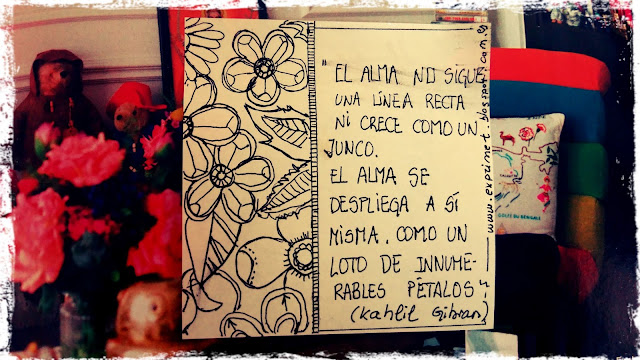 "EL ALMA NO SIGUE
UNA LÍNEA RECTA
NI CRECE COMO UN
JUNCO.
EL ALMA SE
DESPLIEGA A SÍ
MISMA, COMO UN
LOTO DE INNUME-
RABLES PÉTALOS"
(Kahlil Gibran)
GOLFE DU BENGALE